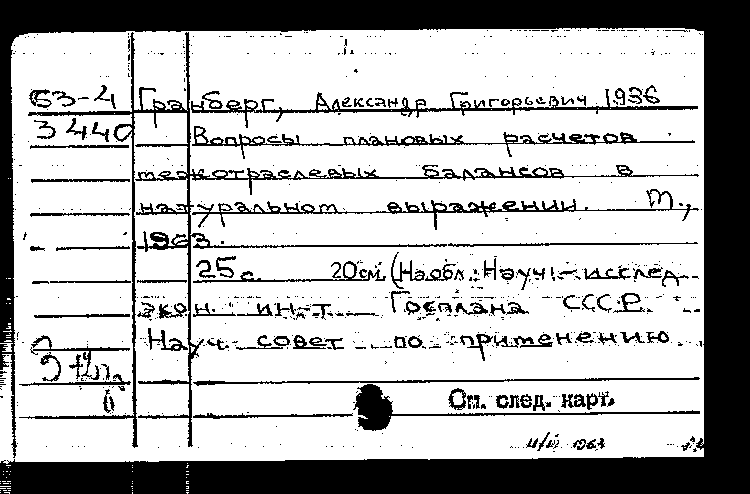 63-4 Гранберг, Александр Григорьевич, 1936
3440 Вопросы плановых расчетов
межотраслевых балансов в
натуральном выражении. М.,
1963.
25с. 20см. (На обл.: Науч.-исслед.
экон. ин-т Госплана СССР.
Науч. совет по применению
См. след. карт.
1963